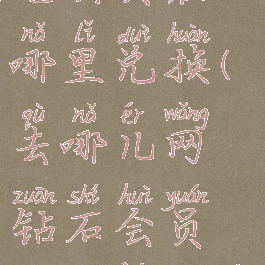 nǎ lǐ duì huàn
哪里兑换(
qù nǎ ér wǎng
去哪儿网
zuān shí huì yuán
钻石会员